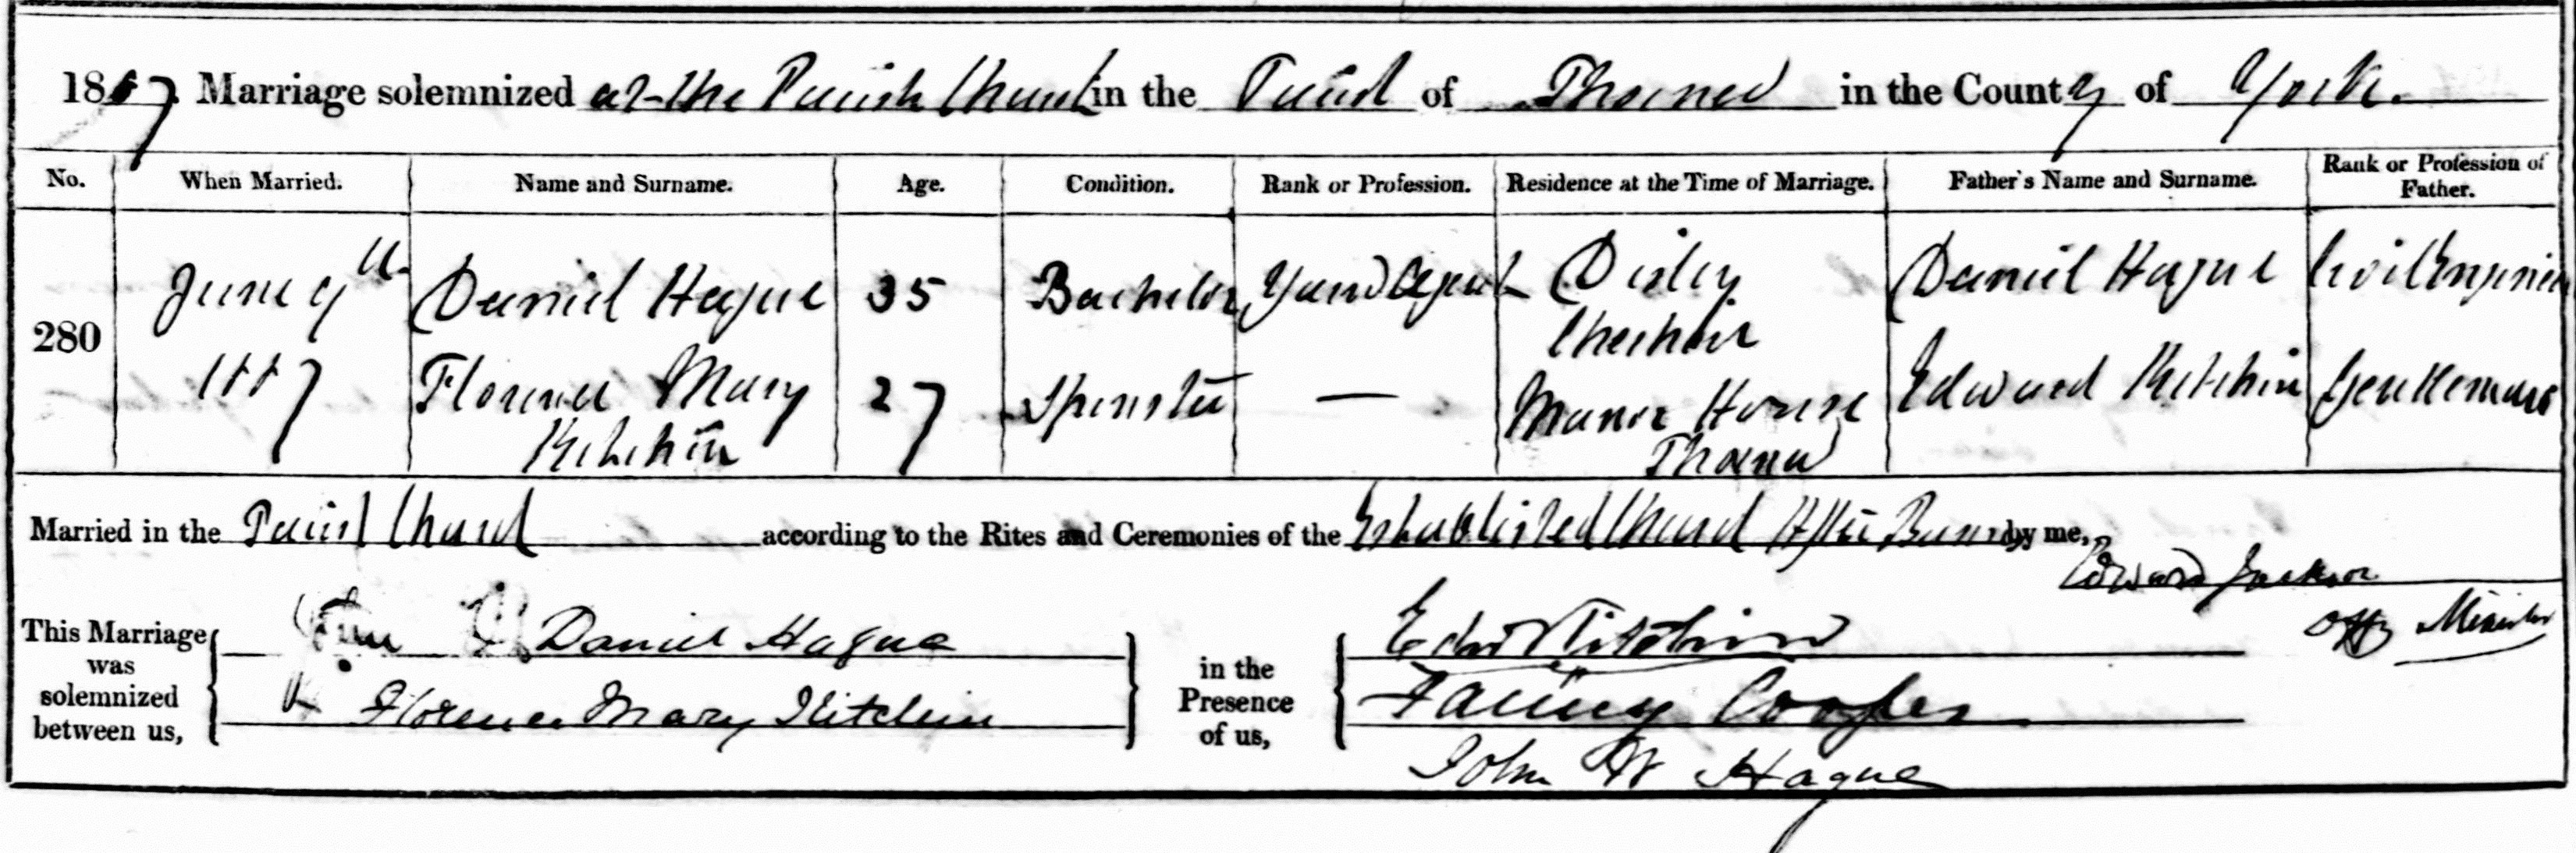 1887. Marriage solemnized at the Parish Church in the Parish of Thorner in the County of York.
No. When Married. Name and Surname. Age. Condition. Rank or Profession. Residence at the Time of Marriage. Father's Name and Surname. Rank or Profession of Father.
280 June 9th Daniel Hague 35 Bachelor Yarn Agent Disley Daniel Hague Civil Engineer
Cheshire
1887 Florence Mary 27 Spinster — Manor House Edward Kitchin Gentleman
Kitchin Thorner
Married in the Parish Church according to the Rites and Ceremonies of the Established Church After Banns by me,
Edward Jackson
Offg Minister
This Marriage was solemnized between us, Daniel Hague in the Presence of us, Edwd Kitchin
Florence Mary Kitchin Fanny Cooper
John W Hague